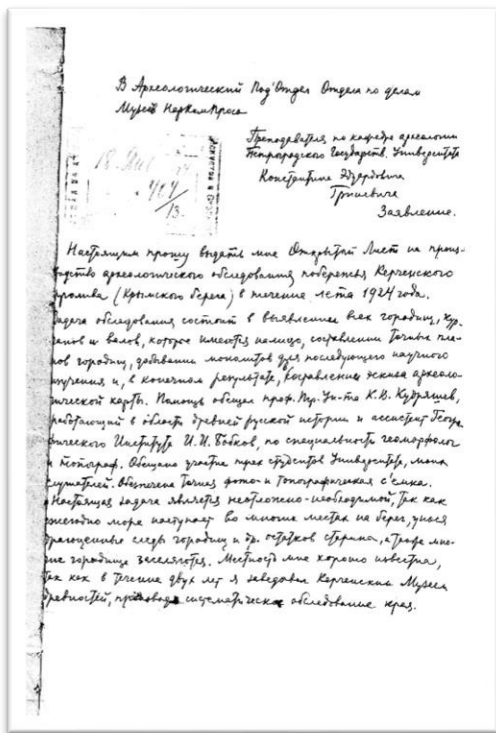 В Археологический Под'Отдел Отдела по делам
Музеев НаркомПроса
Преподавателя по кафедре археологии
Петроградского Государств. Университета
Константина Эдуардовича
Гриневича
Заявление.
18
404/13.
Настоящим прошу выдать мне Открытый Лист на произ-
водство археологического обследования побережья Керченского
пролива (Крымского берега) в течение лета 1924 года.
Задача обследования состоит в выявлении всех городищ, кур-
ганов и валов, которое имеется налицо, составлении точных пла-
нов городищ, добывании монолитов для последующего научного
изучения и, в конечном результате, составлении эскиза археоло-
гической карты. Помощь обещал проф. К.В. Кудряшев,
работающий в области древней русской истории и ассистент Геогра-
фического Института И.И. Бабков, по специальности геоморфолог
и топограф. Обещано участие трех студентов Университета, моих
слушателей. Обеспечена точная фото- и топографическая с'емка.
Настоящая задача является неотложно-необходимой, так как
ежегодно море наступает во многих местах на берег, унося
драгоценные следы городищ и др. остатков старины, а также мно-
гие городища заселяются. Местность мне хорошо известна,
так как в течение двух лет я заведовал Керченским Музеем
древностей, производя систематическое обследование края.